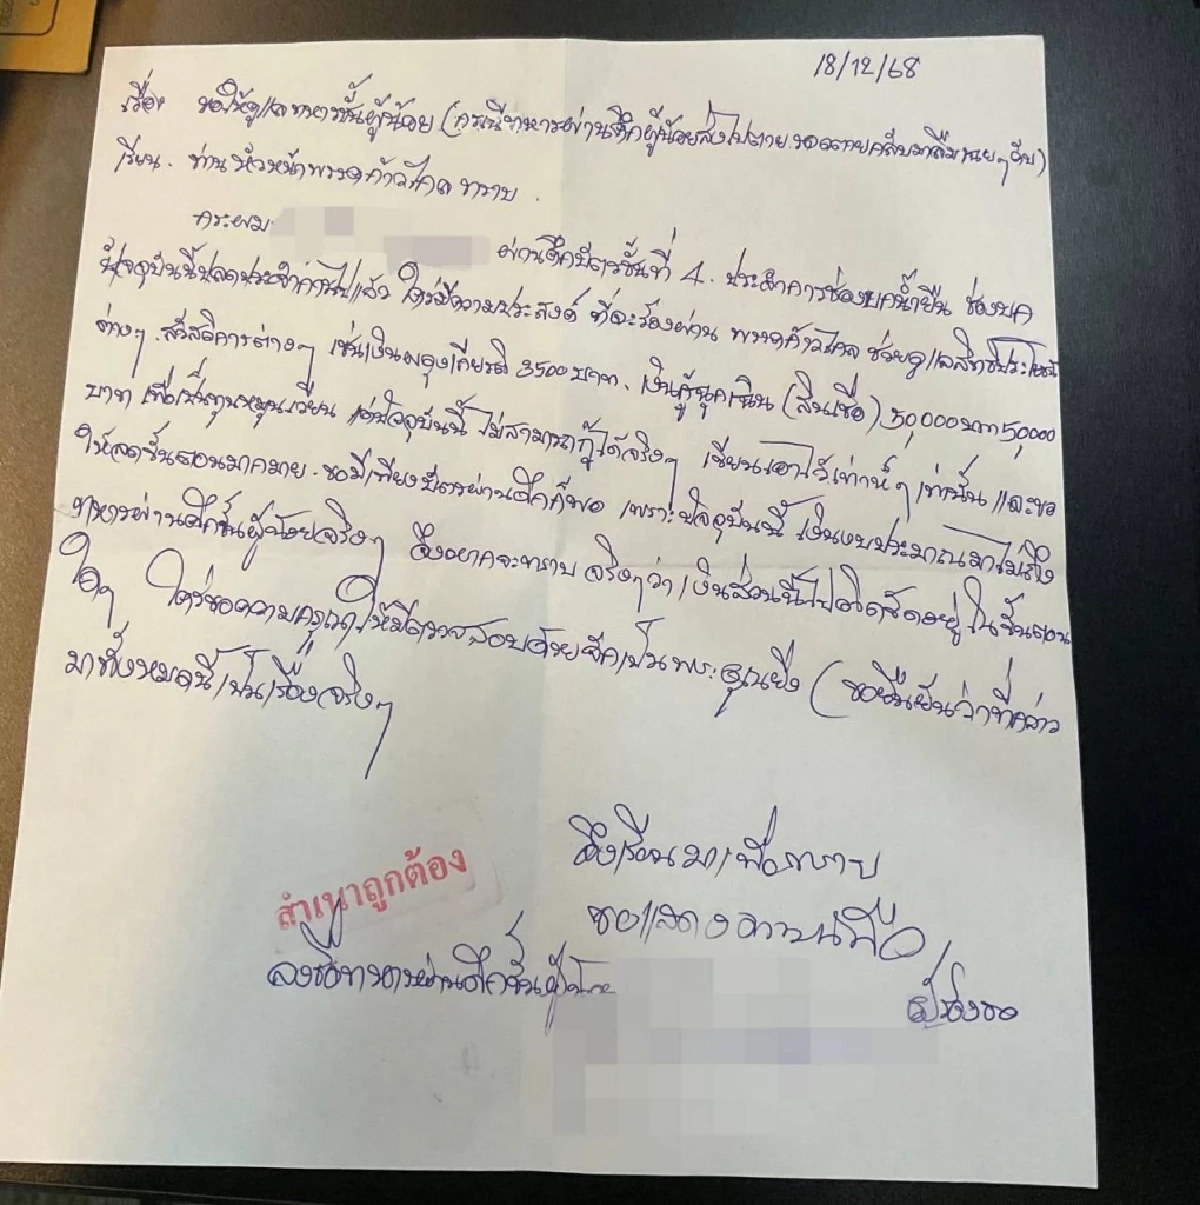 18/12/68
เรื่อง ขอให้ดูแลทหารชั้นผู้น้อย (กรณีทหารผ่านศึกผู้น้อยส่งไปตาย รอดตายกลับมาลืม
เรียน. ท่านหัวหน้าพรรคก้าวไกล ทราบ.
กระผม
ผ่านศึกบัตรชั้นที่ 4. ประจำการช่องบกน้ำยืน ช่องบก
ปัจจุบันนี้ปลดประจำการไปแล้ว ใคร่มีความประสงค์ ที่จะร้องผ่าน พรรคก้าวไกล ช่วยดูแลสิทธิประโยชน์
ต่างๆ. สวัสดิการต่างๆ เช่นเงินผดุงเกียรติ 3500 บาท. เงินกู้ฉุกเฉิน (สินเชื่อ) 50,000บาท 50,000
บาท เพื่อเป็นทุนหมุนเวียน แต่ปัจจุบันนี้ ไม่สามารถกู้ได้จริงๆ เขียนเอาไว้เท่ห์ๆ เท่านั้น และขอ
ให้ลดขั้นตอนมากมาย. ขอมีเพียงบัตรผ่านศึกก็พอ เพราะปัจจุบันนี้ เงินงบประมาณมาไม่ถึง
ทหารผ่านศึกชั้นผู้น้อยจริงๆ จึงอยากจะทราบ จริงๆว่า เงินส่วนนี้ไปติดขัดอยู่ ในขั้นตอน
ใดๆ ใคร่ขอความกรุณา ให้มีตรวจสอบด้วยจักเป็นพระคุณยิ่ง (ขอยืนยันว่าที่กล่าว
มาทั้งหมดนี้เป็นเรื่องจริงๆ
จึงเรียนมาเพื่อทราบ
ขอแสดงความนับถือ
สำเนาถูกต้อง
ลงชื่อทหารผ่านศึกชั้นผู้น้อย
ผู้ร้องขอ